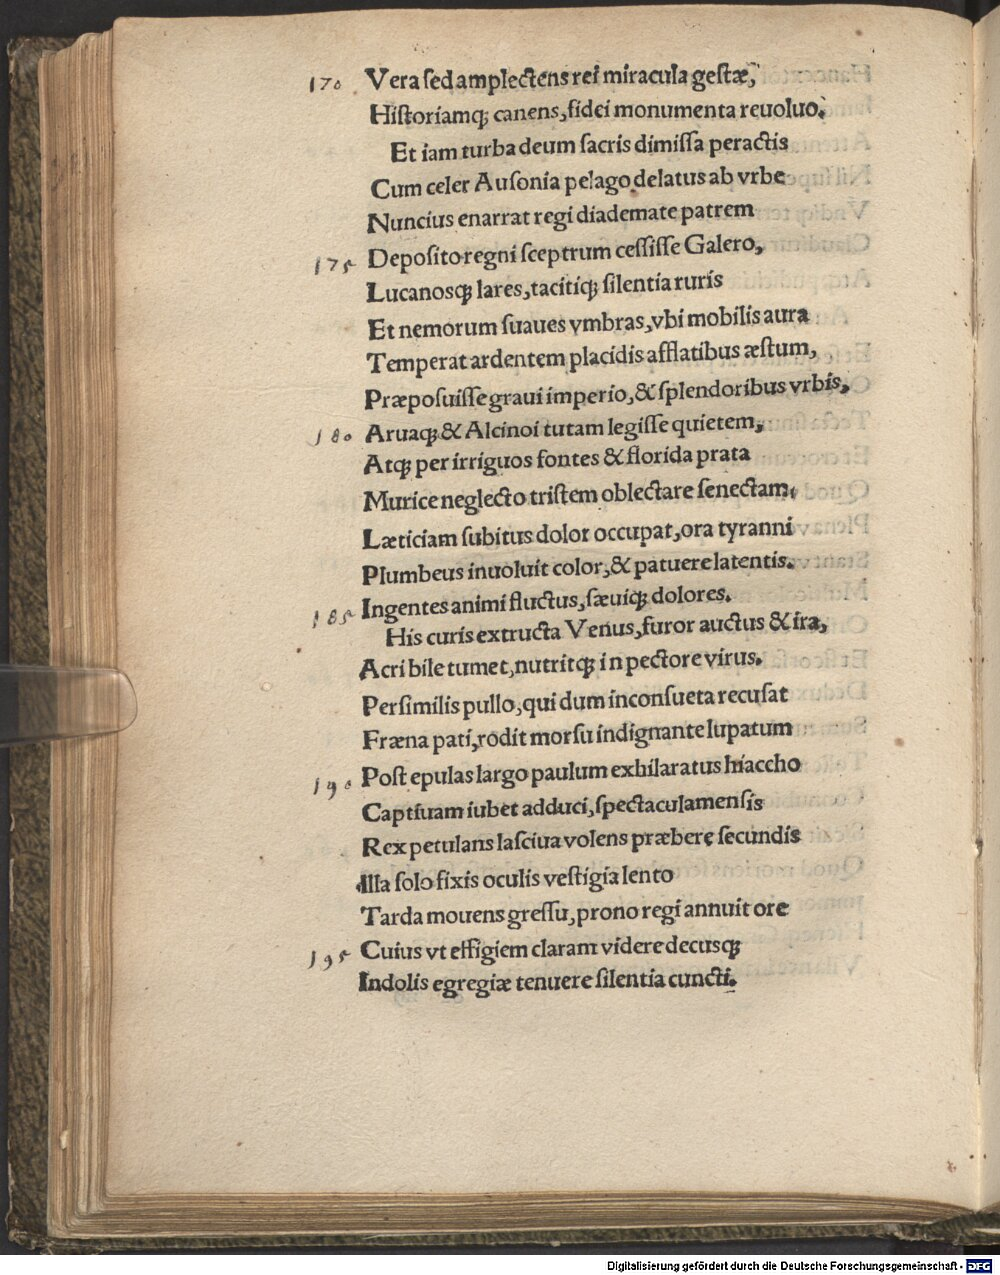 170 Vera sed amplectens rei miracula gestæ,
Historiamqꝫ canens, fidei monumenta reuoluo.
Et iam turba deum sacris dimissa peractis
Cum celer Ausonia pelago delatus ab vrbe
Nuncius enarrat regi diademate patrem
175 Deposito regni sceptrum cessisse Galero,
Lucanosqꝫ lares, tacitiqꝫ silentia ruris
Et nemorum suaues vmbras, vbi mobilis aura
Temperat ardentem placidis afflatibus æstum,
Præposuisse graui imperio, & splendoribus vrbis,
180 Aruaqꝫ & Alcinoi tutam legisse quietem,
Atqꝫ per irriguos fontes & florida prata
Murice neglecto tristem oblectare senectam.
Læticiam subitus dolor occupat, ora tyranni
Plumbeus inuoluit color, & patuere latentis.
185 Ingentes animi fluctus, sæuiqꝫ dolores.
His curis extructa Venus, furor auctus & ira,
Acri bile tumet, nutritqꝫ in pectore virus.
Persimilis pullo, qui dum inconsueta recusat
Fræna pati, rodit morsu indignante lupatum
190 Post epulas largo paulum exhilaratus hiaccho
Captiuam iubet adduci, spectacula mensis
Rex petulans lasciua volens præbere secundis
Illa solo fixis oculis vestigia lento
Tarda mouens gressu, prono regi annuit ore
195 Cuius vt effigiem claram videre decusqꝫ
Indolis egregiæ tenuere silentia cuncti.
Digitalisierung gefördert durch die Deutsche Forschungsgemeinschaft - DFG